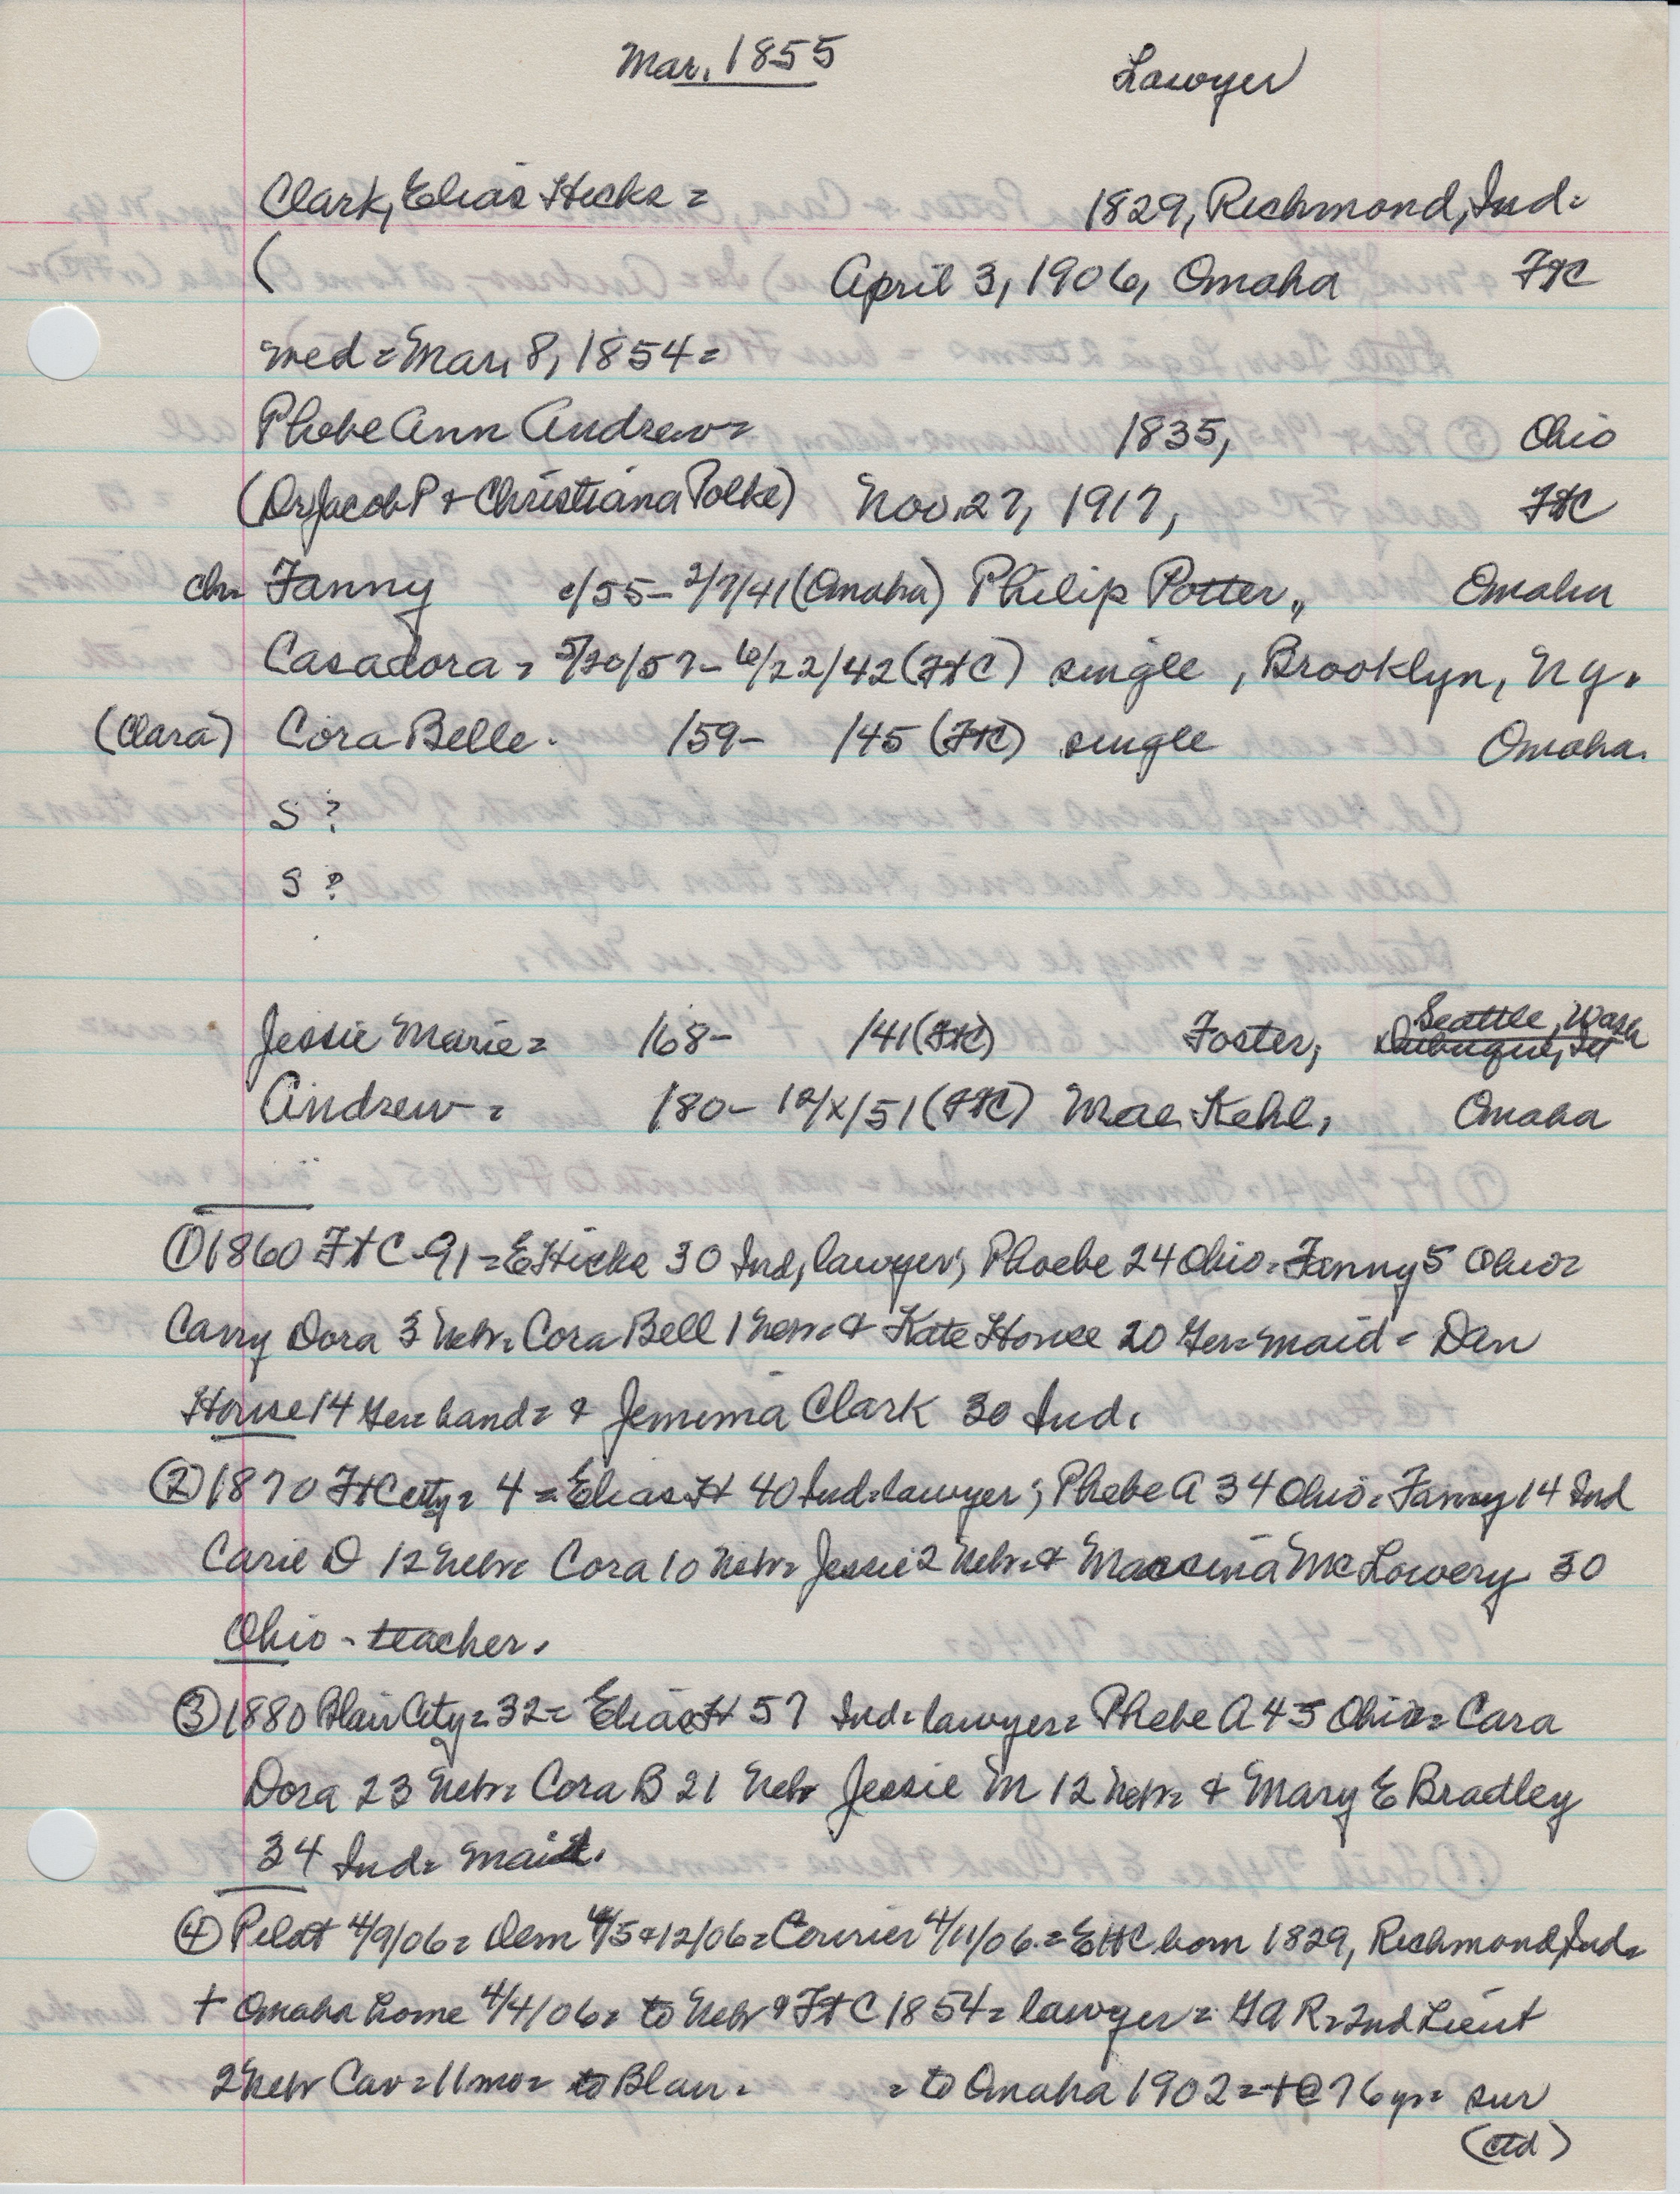 Mar. 1855 Lawyer
Clark, Elias Hicks = 1829, Richmond, Ind.
( April 3, 1906, Omaha FtC
med = Mar. 8, 1854 =
Phebe Ann Andrew = 1835, Ohio
(Dr Jacob P & Christiana Polke) Nov. 27, 1917, FtC
ch. Fanny c/55- 2/7/41 (Omaha) Philip Potter, Omaha
Casadora = 5/20/57- 6/22/42 (FtC) single, Brooklyn, Ny.
(Clara) Cora Belle. /59- /45 (FtC) single Omaha.
S ?
S ?
Jessie Marie = /68- /41 (FtC) Foster, Seattle, Wash
Dubuque,
Andrew = /80- 12/x/51 (FtC) Mae Kehl, Omaha
① 1860 FtC-91 = E Hicks 30 Ind, lawyer; Phoebe 24 Ohio. Fanny 5 Ohio =
Carry Dora 3 Nebr. Cora Bell 1 Nebr. & Kate House 20 Ger = maid = Dan
House 14 Ger = hand = & Jemima Clark 30 Ind.
② 1870 FtCity = 4 = Elias H 40 Ind. lawyer; Phebe A 34 Ohio. Fanny 14 Ind
Carie D 12 Nebr. Cora 10 Nebr. Jessie 2 Nebr. & McLowery 30
Ohio - teacher.
③ 1880 Blair City = 32 = Elias H 57 Ind = lawyer = Phebe A 45 Ohio = Cara
Dora 23 Nebr. Cora B 21 Nebr Jessie M 12 Nebr. & Mary E Bradley
34 Ind = maid.
④ Pilot 4/9/06 = Dem 4/5 & 12/06 = Courier 4/11/06. = EHC born 1829, Richmond, Ind =
+ Omaha home 4/4/06 = to Nebr & FtC 1854 = lawyer = GAR = 2nd Lieut
2 Nebr Cav = 11 mo = to Blair. = to Omaha 1902 = +@ 76 yr = sur
(ctd)